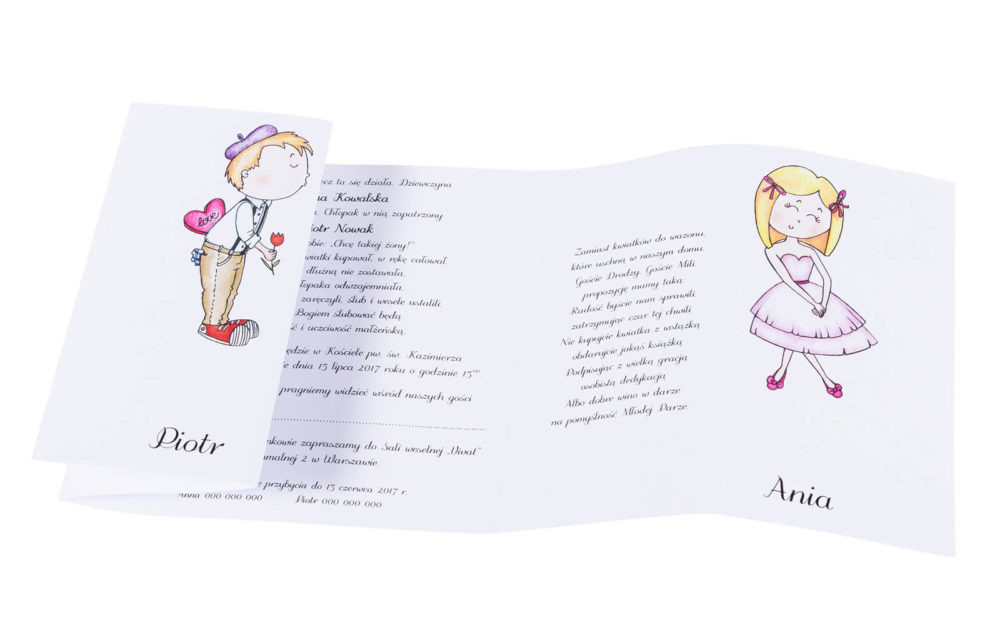 love
Piotr
ecz ta się działa. Dziewczyna
na Kowalska
Chłopak w nią zapatrzony
iotr Nowak
obie: „Chcę takiej żony!”
wiatki kupował, w rękę całował
dłużną nie zostawała,
łopaka odwzajemniała.
zaręczyli, ślub i wesele ustalili.
Bogiem ślubować będą
ć i uczciwość małżeńską.
ędzie w Kościele pw. św. Kazimierza
ie dnia 15 lipca 2017 roku o godzinie 15⁰⁰.
pragniemy widzieć wśród naszych gości
nkowie zapraszamy do Sali weselnej „Vivat”
malnej 2 w Warszawie.
e przybycia do 15 czerwca 2017 r.
Anna 000 000 000 Piotr 000 000 000
Zamiast kwiatków do wazonu,
które uschną w naszym domu,
Goście Drodzy, Goście Mili,
propozycję mamy taką:
Radość byście nam sprawili,
zatrzymując czar tej chwili
Nie kupujcie kwiatka z wstążką
obdarujcie jakąś książką
Podpisując z wielką gracją
osobistą dedykacją
Albo dobre wino w darze
na pomyślność Młodej Parze.
Ania